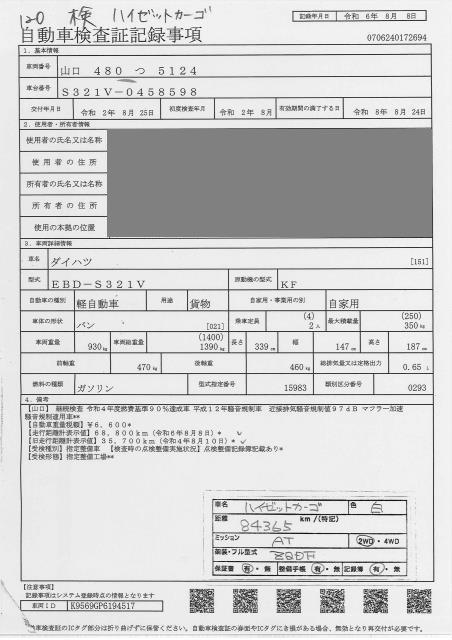 120 検 ハイゼットカーゴ
記録年月日 令和 6年 8月 8日
自動車検査証記録事項
0706240172694
1．基本情報
車両番号 山口 480 つ 5124
車台番号 S321V-0458598
交付年月日 令和 2年 8月 25日 初度検査年月 令和 2年 8月 有効期間の満了する日 令和 8年 8月 24日
2．使用者・所有者情報
使用者の氏名又は名称
使用者の住所
所有者の氏名又は名称
所有者の住所
使用の本拠の位置
3．車両詳細情報
車名 ダイハツ [151]
型式 EBD-S321V 原動機の型式 KF
自動車の種別 軽自動車 用途 貨物 自家用・事業用の別 自家用
車体の形状 バン [021] 乗車定員 (4) 2人 最大積載量 (250) 350kg
車両重量 930kg 車両総重量 (1400) 1390kg 長さ 339cm 幅 147cm 高さ 187cm
前軸重 470kg 後軸重 460kg 総排気量又は定格出力 0.65 L
燃料の種類 ガソリン 型式指定番号 15983 類別区分番号 0293
4．備考
【山口】 継続検査 令和4年度燃費基準90％達成車 平成12年騒音規制車 近接排気騒音規制値97dB マフラー加速
騒音規制適用車**
【自動車重量税額】￥6，600*
【走行距離計表示値】68，800km（令和6年8月8日）*
【旧走行距離計表示値】35，700km（令和4年8月10日）*
【受検種別】指定整備車 【検査時の点検整備実施状況】点検整備記録簿記載あり*
【受検形態】指定整備工場**
車名 ハイゼットカーゴ 色 白
距離 84365 km／(特記)
ミッション AT 2WD・4WD
架装・フル型式
保証書 有・無 整備手帳 有・無 記録簿 有・無
【注意事項】
記録事項はシステム登録時点の情報となります
車両ID K9569GP6194517
車検査証のICタグ部分は折り曲げずに保管ください。自動車検査証の券面やICタグに き損がある場合、無効となり再交付が必要です。